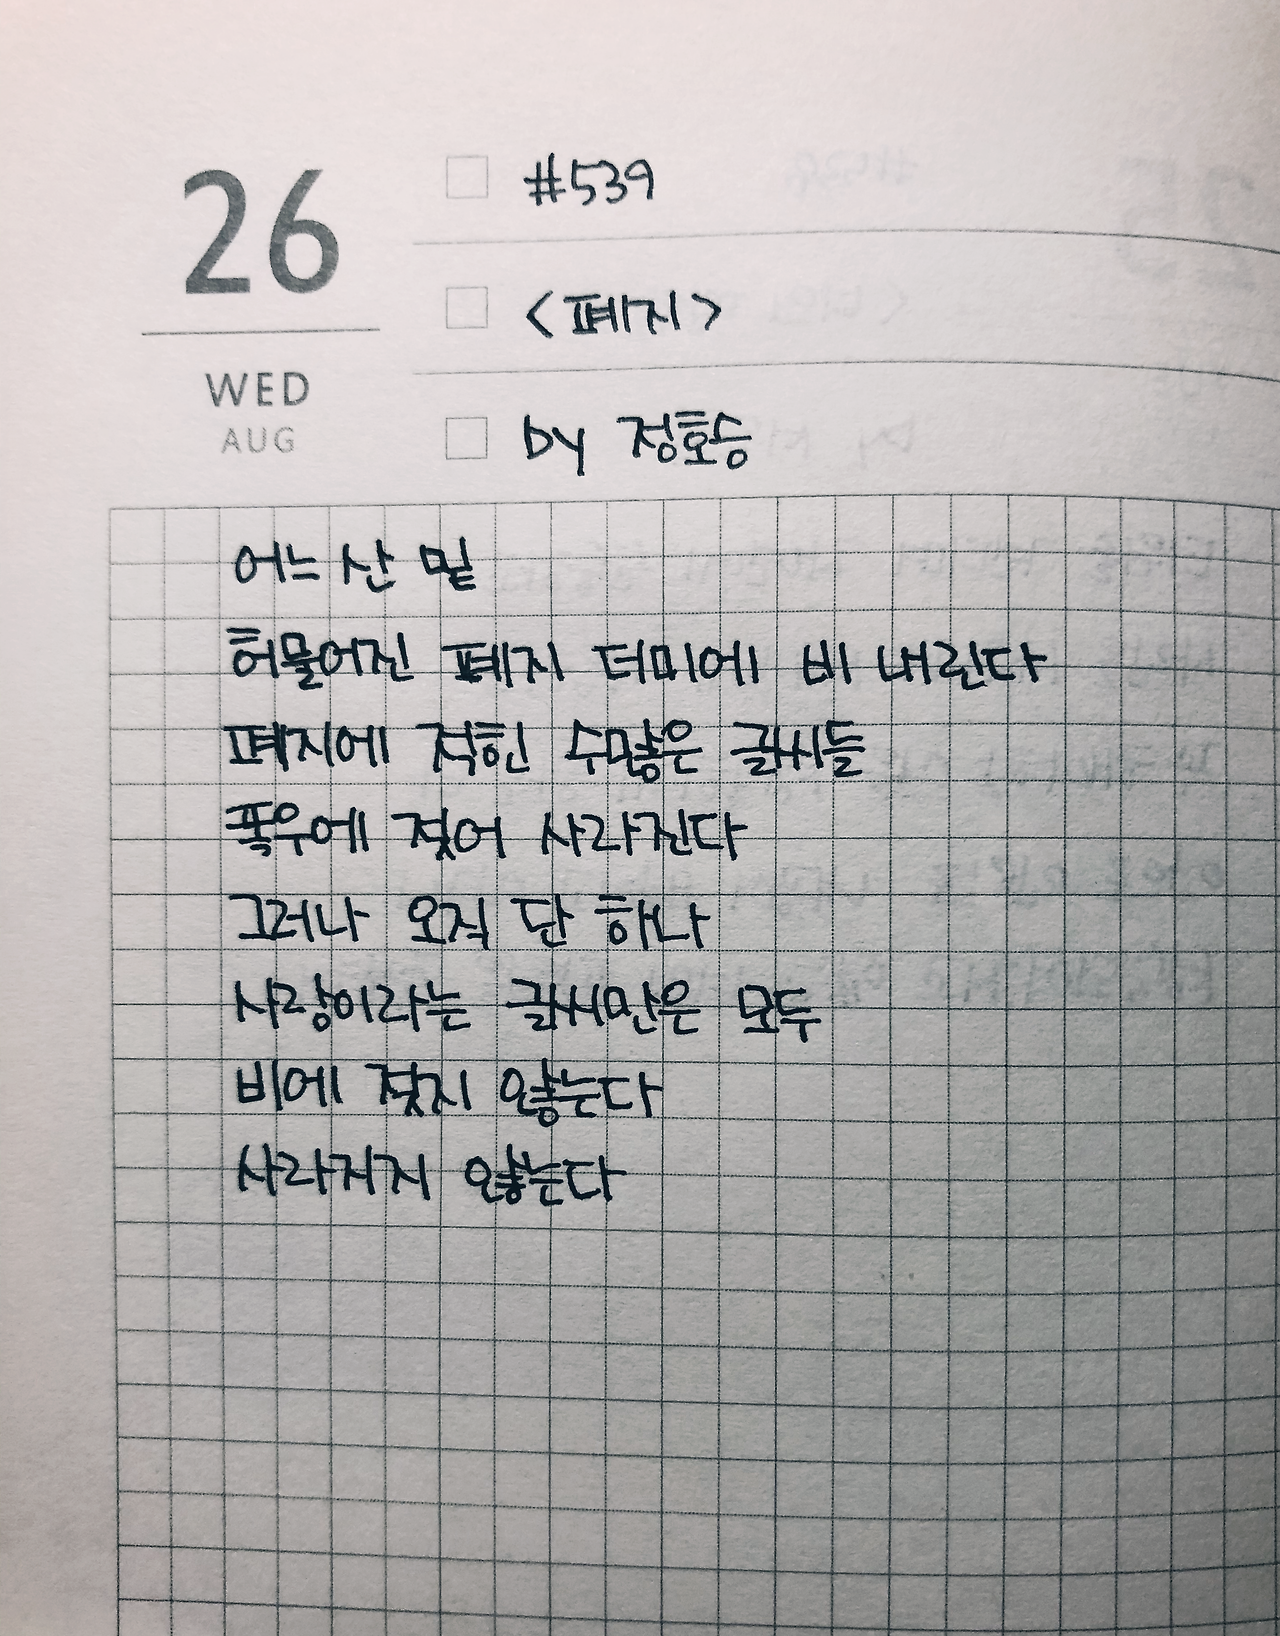 26
WED
AUG
#539
<폐지>
by 정호승
어느 산 밑
허물어진 폐지 더미에 비 내린다
폐지에 적힌 수많은 글씨들
폭우에 젖어 사라진다
그러나 오직 단 하나
사랑이라는 글씨만은 모두
비에 젖지 않는다
사라지지 않는다